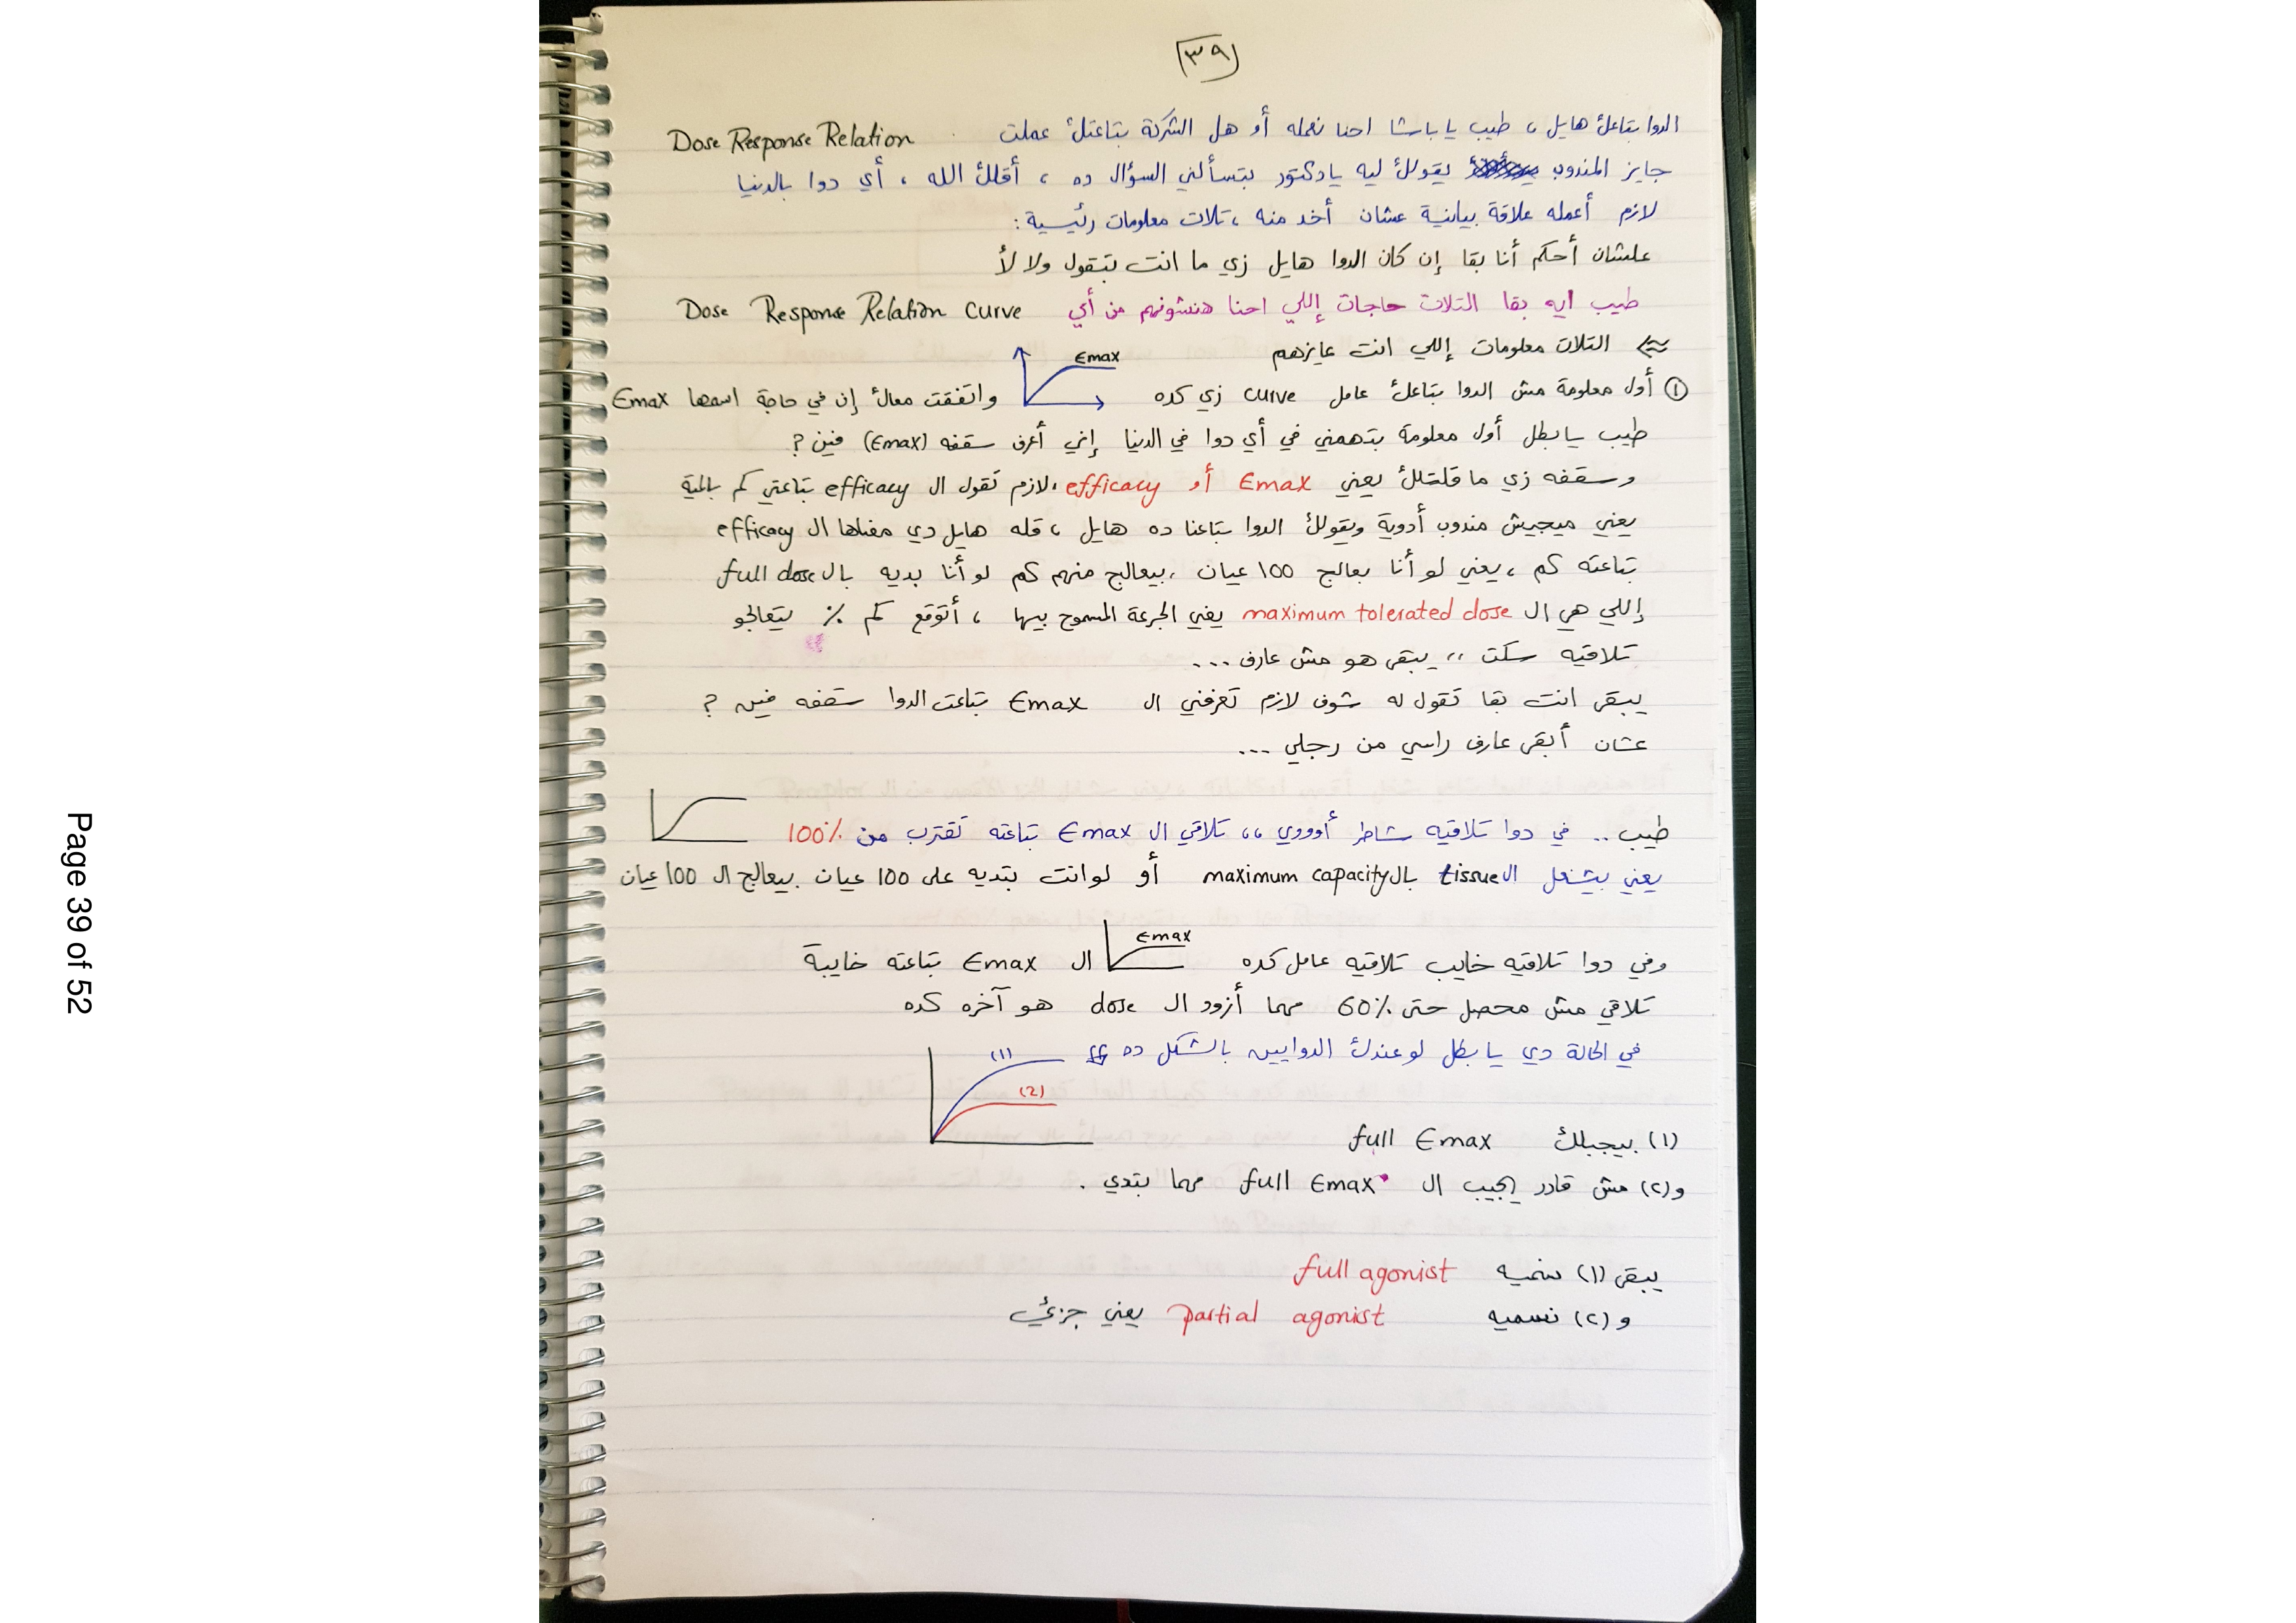 ٣٩
الدوا بتاعك هايل ، طيب يا باشا احنا نعمله أو هل الشركة بتاعتك عملت Dose Response Relation
جايز المندوب يقولك ليه يا دكتور بتسألني السؤال ده ، أقلك الله ، أي دوا بالدنيا
لازم أعمله علاقة بيانية عشان أخد منه ، تلات معلومات رئيسية :
علشان أحكم أنا بقا إن كان الدوا هايل زي ما انت بتقول ولا لأ
طيب ايه بقا التلات حاجات إللي احنا هنشوفهم من أي Dose Response Relation curve
التلات معلومات إللي انت عايزهم
Emax
① أول معلومة مش الدوا بتاعك عامل curve زي كده واتفقت معاك إن في حاجة اسمها Emax
طيب يا بطل أول معلومة بتهمني في أي دوا في الدنيا إني أعرف سقفه (Emax) فين ?
وسقفه زي ما قلتلك يعني Emax أو efficacy ، لازم تقول ال efficacy بتاعتي كم بالمية
يعني ميجيش مندوب أدوية ويقولك الدوا بتاعنا ده هايل ، قله هايل دي معناها ال efficacy
بتاعته كم ، يعني لو أنا بعالج 100 عيان ، بيعالج منهم كم لو أنا بديه بال full dose
إللي هي ال maximum tolerated dose يعني الجرعة المسموح بيها ، أتوقع كم % يتعالجو
تلاقيه سكت ،، يبقى هو مش عارف ...
يبقى انت بقا تقول له شوف لازم تعرفني ال Emax بتاعت الدوا سقفه فين ?
عشان أبقى عارف راسي من رجلي ...
طيب .. في دوا تلاقيه شاطر أوووي ،، تلاقي ال Emax بتاعته تقترب من 100%
يعني بيشغل ال tissue بال maximum capacity أو لو انت بتديه على 100 عيان بيعالج ال 100 عيان
Emax
وفي دوا تلاقيه خايب تلاقيه عامل كده ال Emax بتاعته خايبة
تلاقي مش محصل حتى 60% مهما أزود ال dose هو آخره كده
في الحالة دي يا بطل لو عندك الدوايين بالشكل ده
(1)
(2)
(١) بيجبلك full Emax
و(٢) مش قادر يجيب ال full Emax مهما بتدي .
يبقى (١) نسميه full agonist
و (٢) نسميه partial agonist يعني جزئي
Page 39 of 52